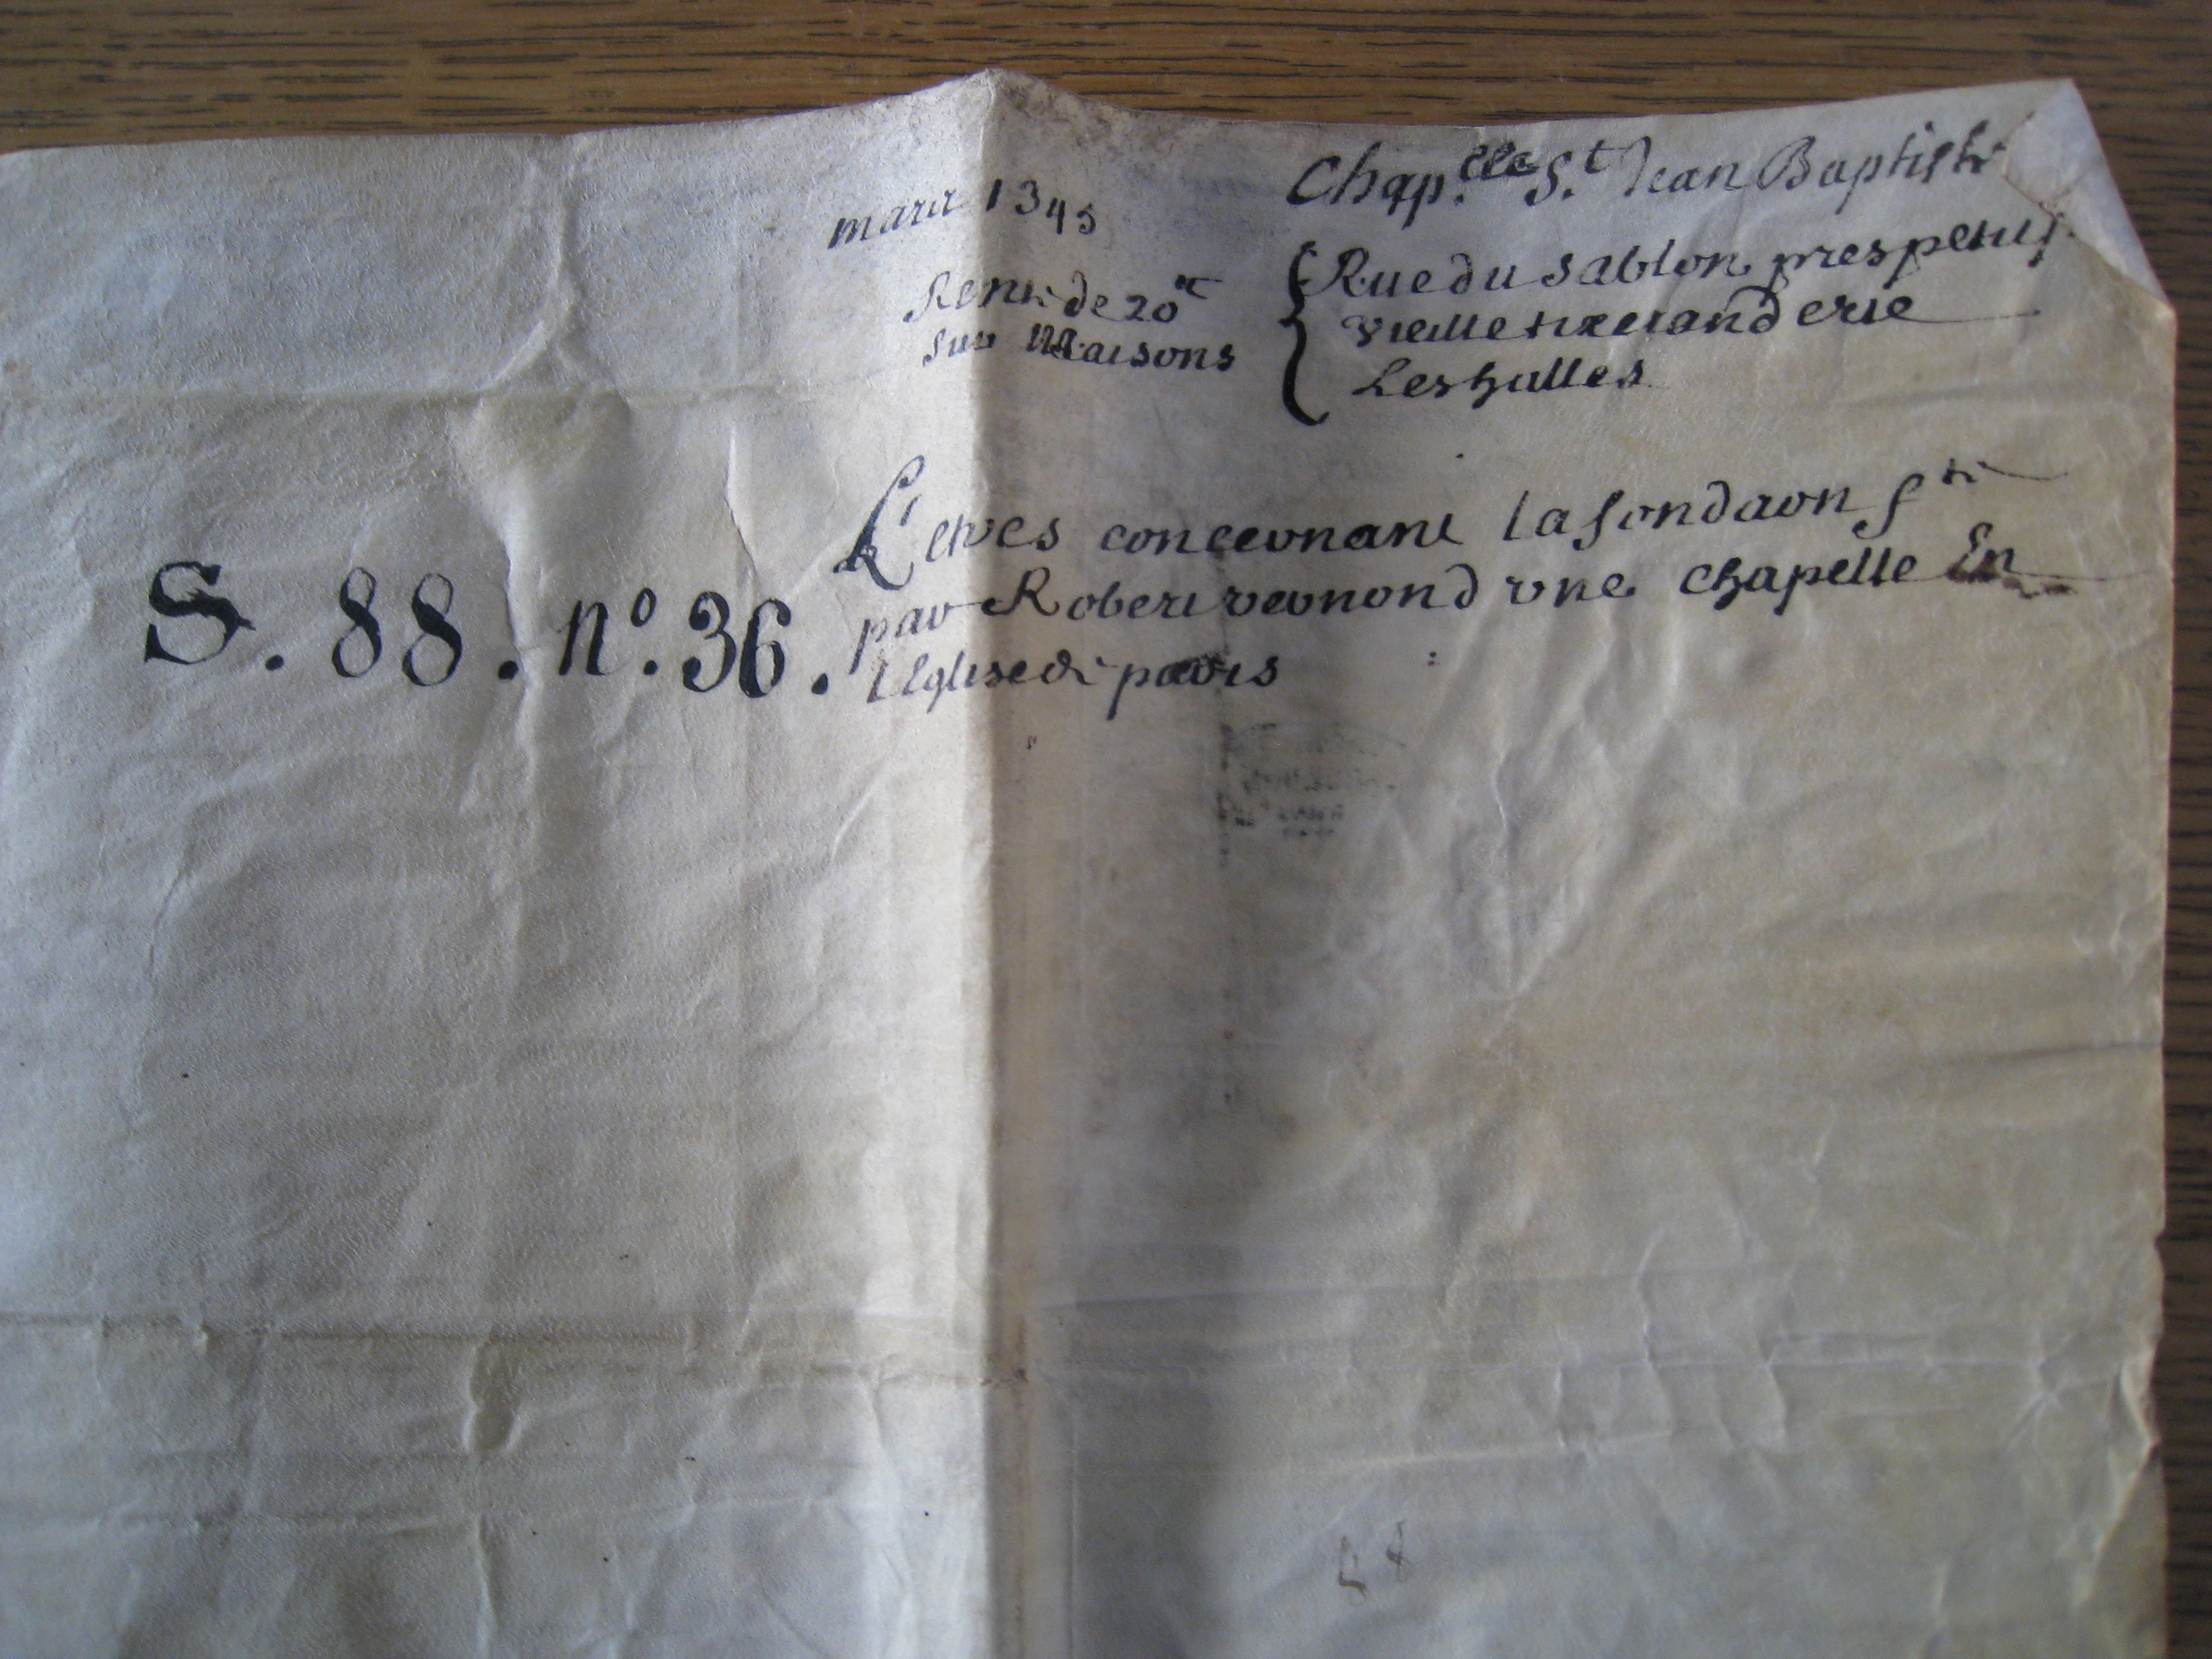 Chap.elle S.t Jean Baptiste
mars 1345
Rente de 20tt
sur Maisons
Rue du sablon pres petit
vieille tixeranderie
Les halles
Lettres concernant la fondaon fte
par Robert vernond vne chapelle En
l Eglise de paris
S. 88. no. 36.